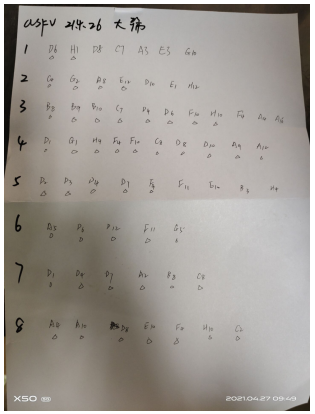 ASFV 21.4.26 大锅
1 D6 H1 D8 C7 A3 E3 G10
2 C4 G2 A8 E12 D10 E1 H12
3 B3 B9 B10 C7 D4 D6 F10 H10 F4
4 D1 G3 H9 F4 F10 C8 D8 D10 A9 A12
5 D2 D3 D4 D7 F4 F11 E10
6 D2 D12 F11 G5
7 D1 D4 D7 A2 B3 C8
8 A8 A10 D8 E10 F2 H10 C2
X50
2021.04.27 09:49